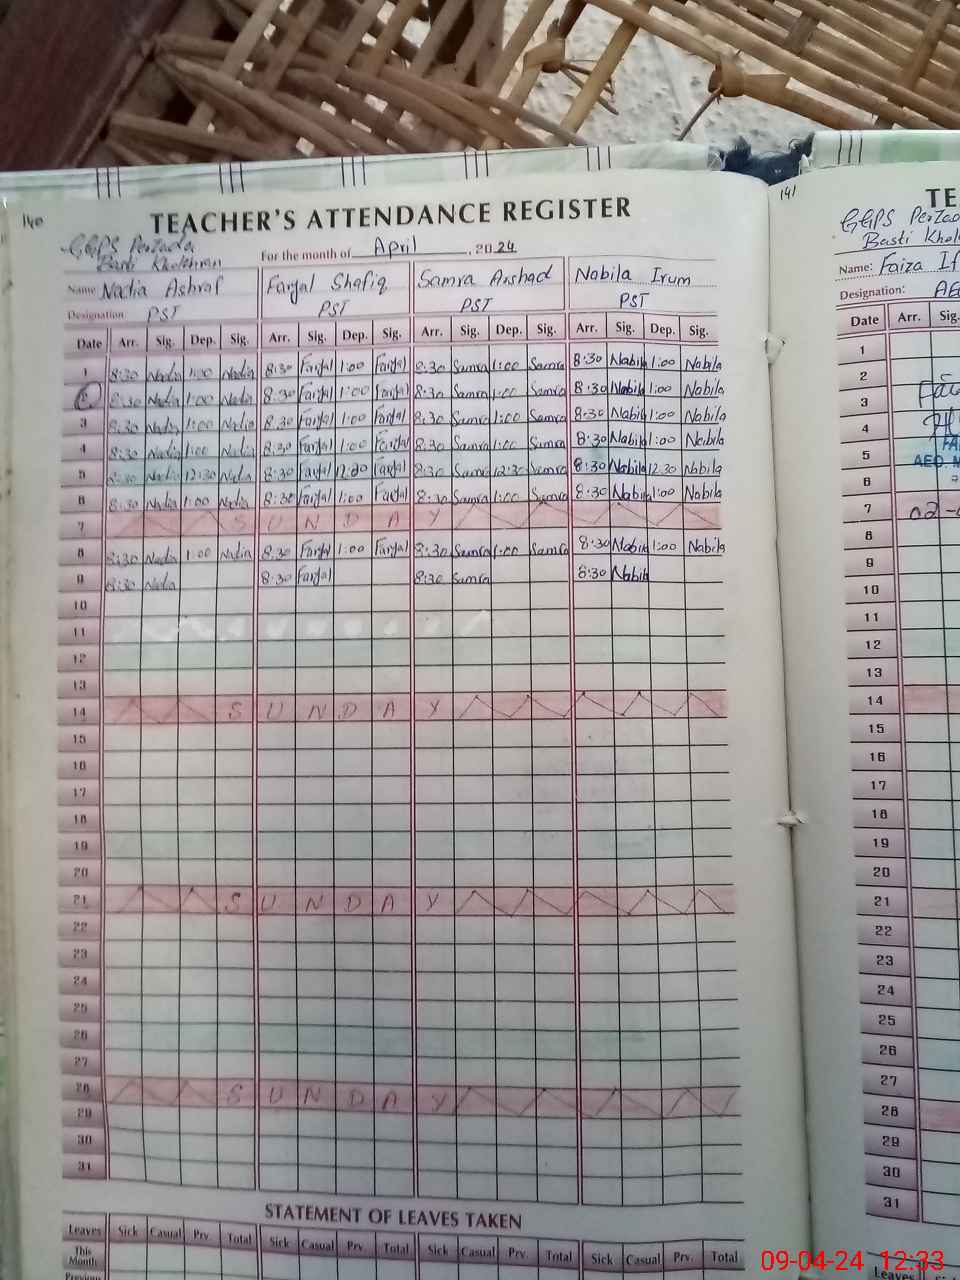 140
TEACHER'S ATTENDANCE REGISTER
GGPS Perzada
Basti Khokhran
For the month of April, 2024
Name Nadia Ashraf Farjal Shafiq Samra Arshad Nabila Irum
Designation PST PST PST PST
Date Arr. Sig. Dep. Sig. Arr. Sig. Dep. Sig. Arr. Sig. Dep. Sig. Arr. Sig. Dep. Sig.
1 8:30 Nadia 1:00 Nadia 8:30 Farjal 1:00 Farjal 8:30 Samra 1:00 Samra 8:30 Nabila 1:00 Nabila
2 8:30 Nadia 1:00 Nadia 8:30 Farjal 1:00 Farjal 8:30 Samra 1:00 Samra 8:30 Nabila 1:00 Nabila
3 8:30 Nadia 1:00 Nadia 8:30 Farjal 1:00 Farjal 8:30 Samra 1:00 Samra 8:30 Nabila 1:00 Nabila
4 8:30 Nadia 1:00 Nadia 8:30 Farjal 1:00 Farjal 8:30 Samra 1:00 Samra 8:30 Nabila 1:00 Nabila
5 8:30 Nadia 12:30 Nadia 8:30 Farjal 12:30 Farjal 8:30 Samra 12:30 Samra 8:30 Nabila 12:30 Nabila
6 8:30 Nadia 1:00 Nadia 8:30 Farjal 1:00 Farjal 8:30 Samra 1:00 Samra 8:30 Nabila 1:00 Nabila
7 SUNDAY
8 8:30 Nadia 1:00 Nadia 8:30 Farjal 1:00 Farjal 8:30 Samra 1:00 Samra 8:30 Nabila 1:00 Nabila
9 8:30 Nadia 8:30 Farjal 8:30 Samra 8:30 Nabila
10
11
12
13
14 SUNDAY
15
16
17
18
19
20
21 SUNDAY
22
23
24
25
26
27
28 SUNDAY
29
30
31
STATEMENT OF LEAVES TAKEN
Leaves Sick Casual Prv. Total Sick Casual Prv. Total Sick Casual Prv. Total Sick Casual Prv. Total
This Month
Previous
141
TE
GGPS Perzada
Basti Khokh
Name: Faiza If
Designation: AE
Date Arr. Sig.
1
2
3
4
5 AEO. M
6
7 02-
8
9
10
11
12
13
14
15
16
17
18
19
20
21
22
23
24
25
26
27
28
29
30
31
Leaves
09-04-24 12:33